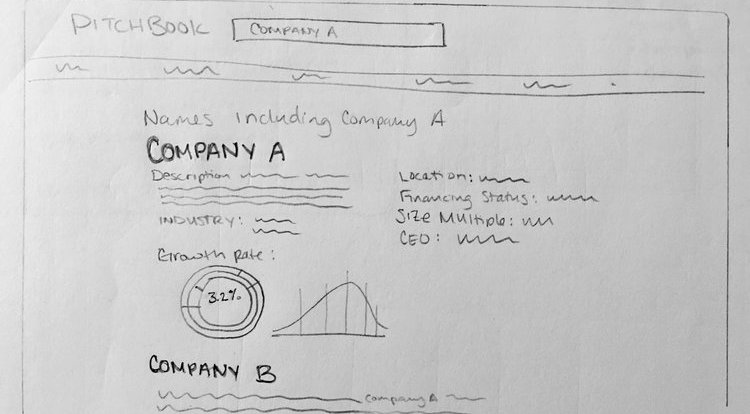 PITCHBOOK COMPANY A
Names including Company A
COMPANY A
Description
Location:
Financing Status:
Size Multiple:
CEO:
INDUSTRY:
Growth Rate:
3.2%
COMPANY B
Company A